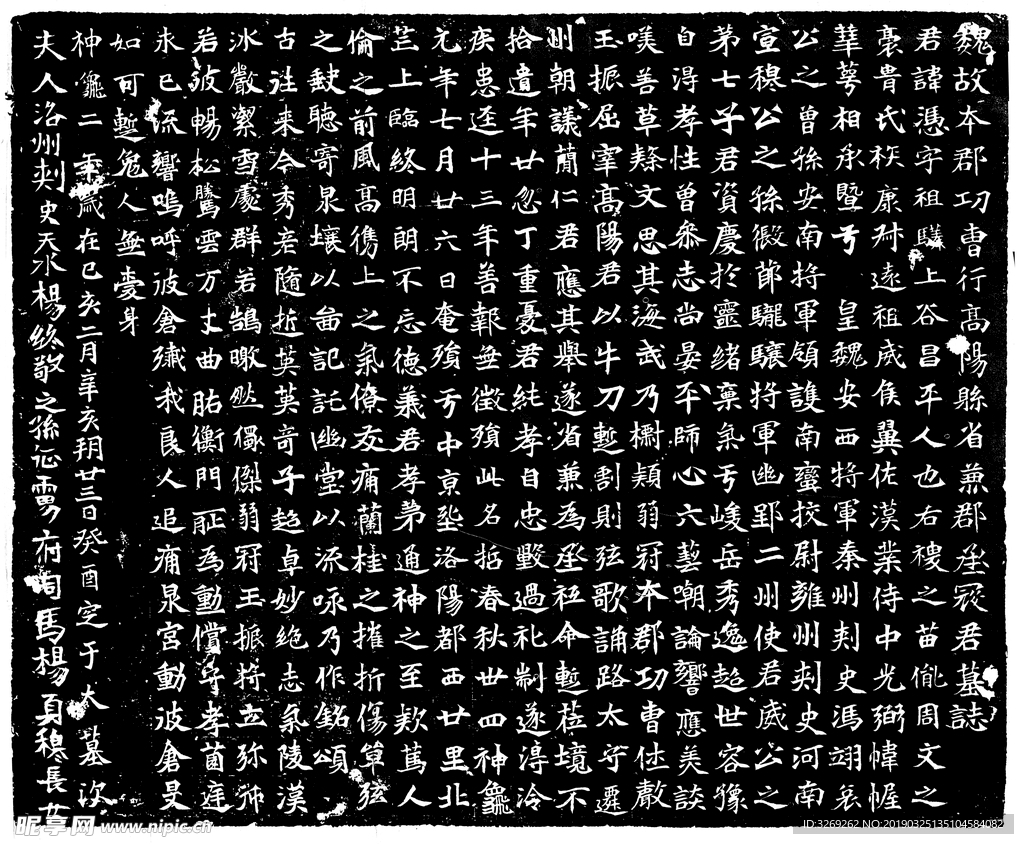 魏故本郡功曹行高陽縣省兼郡丞寇君墓誌
君諱憑字祖驎上谷昌平人也右稷之苗胤周文之
裔胄氏族康叔遠祖威侯翼佐漢業侍中光弼幃幄
華萼相承暨于 皇魏安西將軍秦州刾史馮翊哀
公之曾孫安南將軍領護南蠻挍尉雍州刾史河南
宣穆公之孫假節驤將軍幽郢二州使君威公之
第七子君資慶於靈緒稟氣于峻岳秀逸超世容豫
自得孝性曾參志尚晏平師心六藝嘲論響應美談
嘆善草隸文思其海弍乃檦穎弱冠本郡功曹
玉振屈宰高陽君以牛刀蹔割則弦歌誦路太守遷
州朝議蕳仁君應其舉遂省兼為丞祗命蹔莅境不
拾遺年廿忽丁重憂君純孝自忠毀過礼制遂渟泠
疾患迳十三年善報無徵殞此名哲春秋卅四神龜
元年七月廿六日奄殞于中京洛陽都西廿里北
芒上臨終明朗不忘德義君孝第通神之至欺篤人
倫之前風高儁上之氣僚友痛蘭桂之摧折傷草弦
之聴寄泉壤以啚記託幽堂以流咏乃作銘頌
古往來今秀彦隨逝英英奇子超卓妙絕志氣陵漢
冰嚴絜雪處群若鵠皦然獨傑弱冠玉振将立弥
若披暢松騰雲方丈曲肱衡門耻為動償守孝茵庭
未已流響嗚呼彼倉殲我良人追痛泉宮動彼倉旻
如可蹔免人無愛身
神龜二年歲在己亥二月辛亥朔廿三日癸酉窆于大墓次
夫人洛州刾史天水楊終敬之孫征虜府司馬楊貞穆長女
昵享网 www.nipic.cn
ID:3269262 NO:20190325135104584082